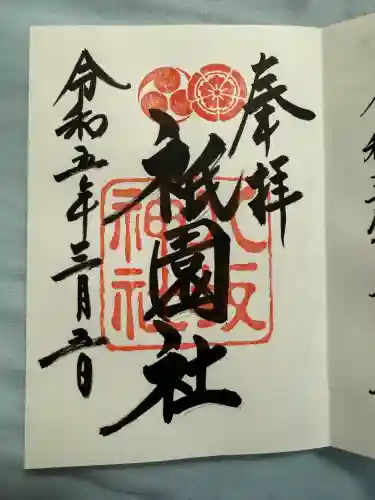 奉拝
八坂
神社
祇園社
令和五年三月五日